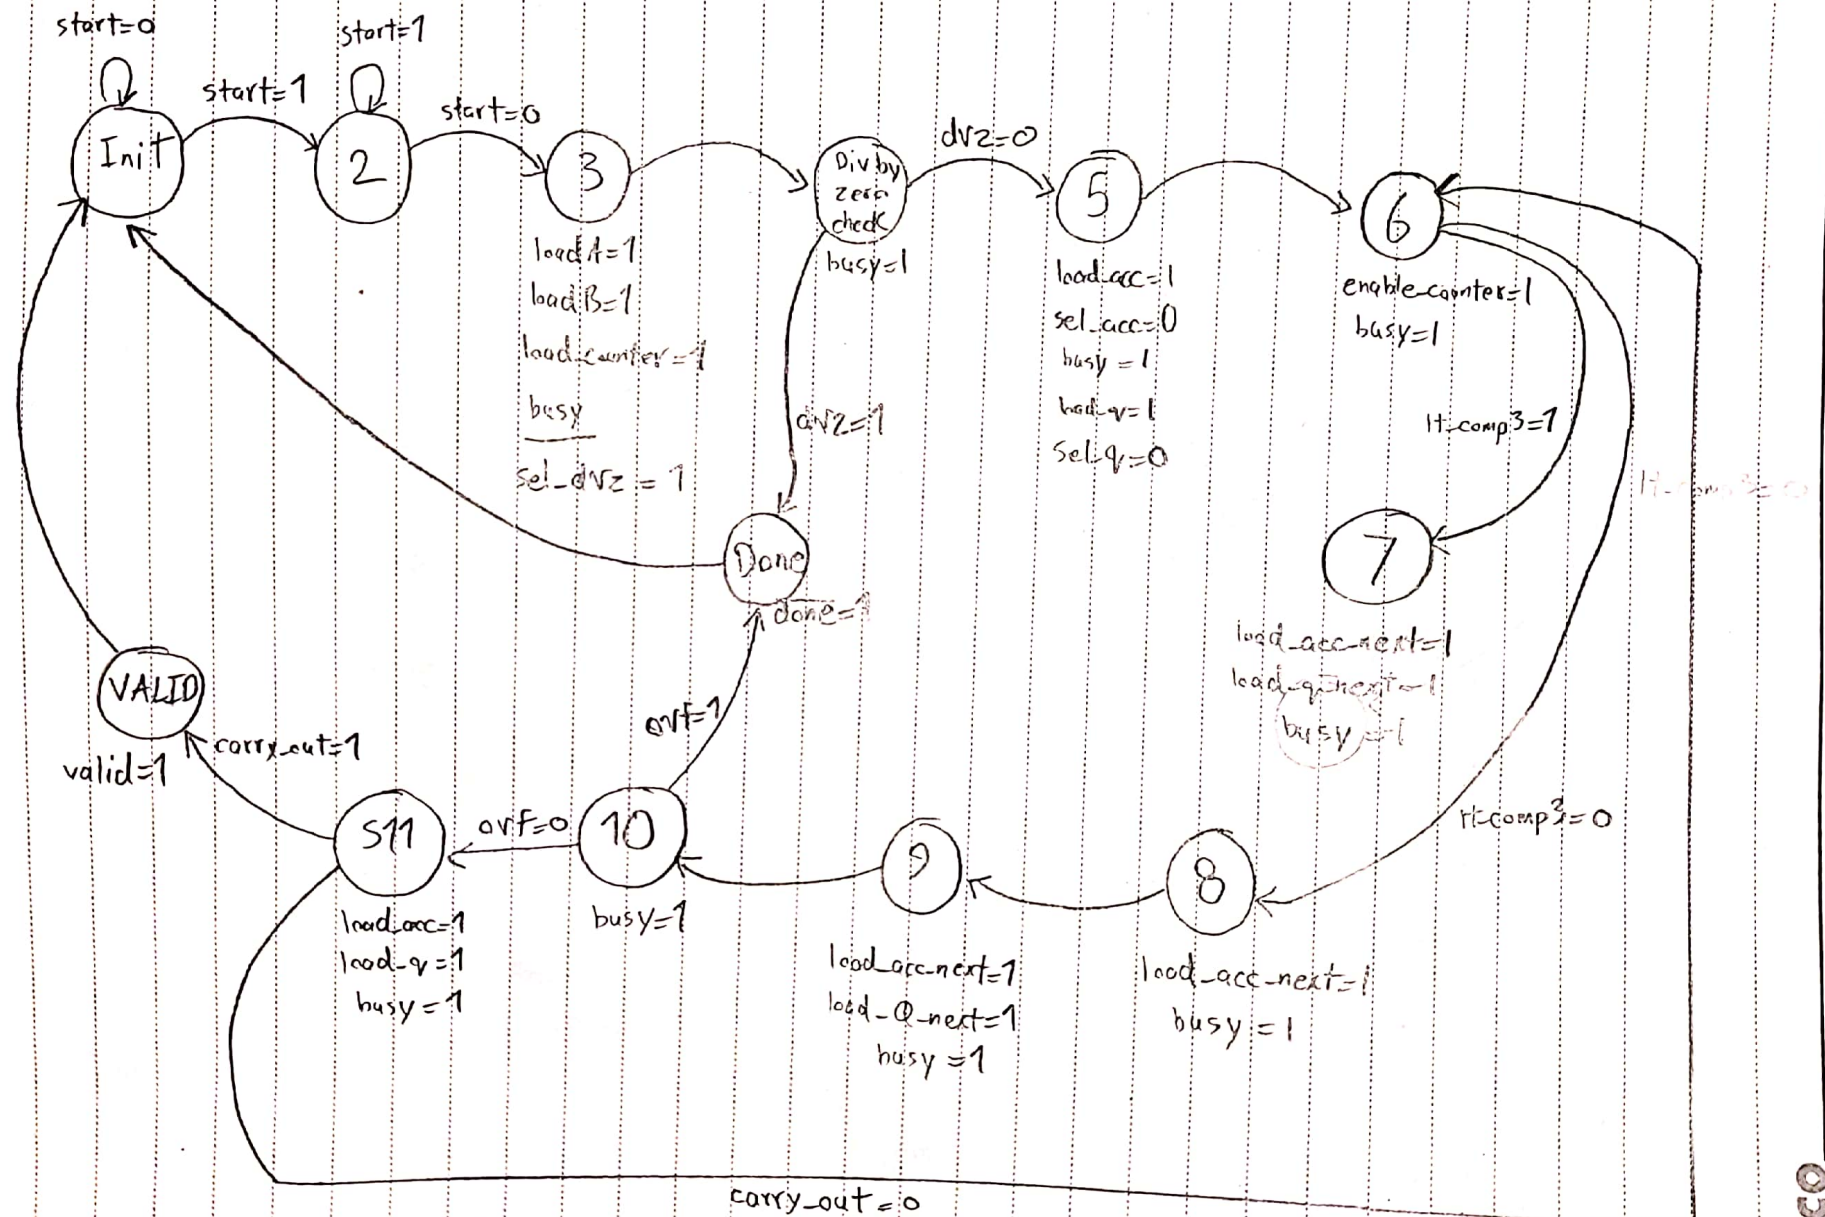 start=0
start=1
start=1
start=0
dvz=0
Init
2
3
Div by
zero
check
busy=1
5
6
loadA=1
loadB=1
load_counter=1
busy
sel_dvz=1
load_acc=1
sel_acc=0
busy=1
load_q=1
sel_q=0
enable_counter=1
busy=1
dvz=1
lt_comp3=1
lt_comp3=0
Done
done=1
7
load_acc_next=1
load_q_next=1
busy=1
VALID
valid=1
carry_out=1
ovf=1
S11
ovf=0
10
9
8
load_acc=1
load_q=1
busy=1
busy=1
load_acc_next=1
load_Q_next=1
busy=1
load_acc_next=1
busy=1
carry_out=0